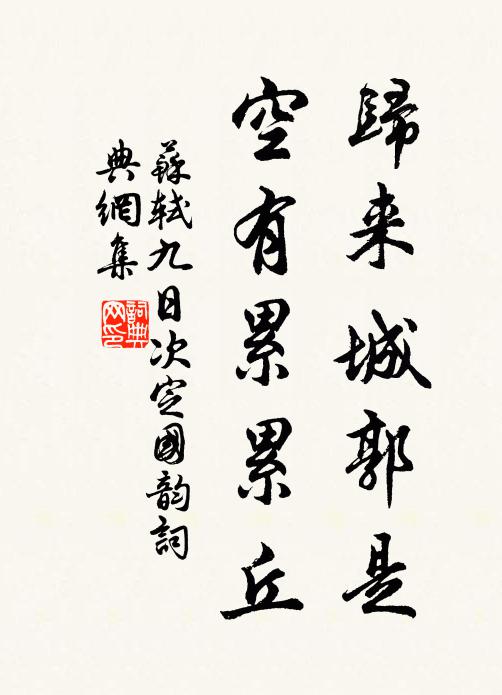 歸来城郭是
空有累累丘
蘇軾九日次定國韵詞
典網集
詞典
网印